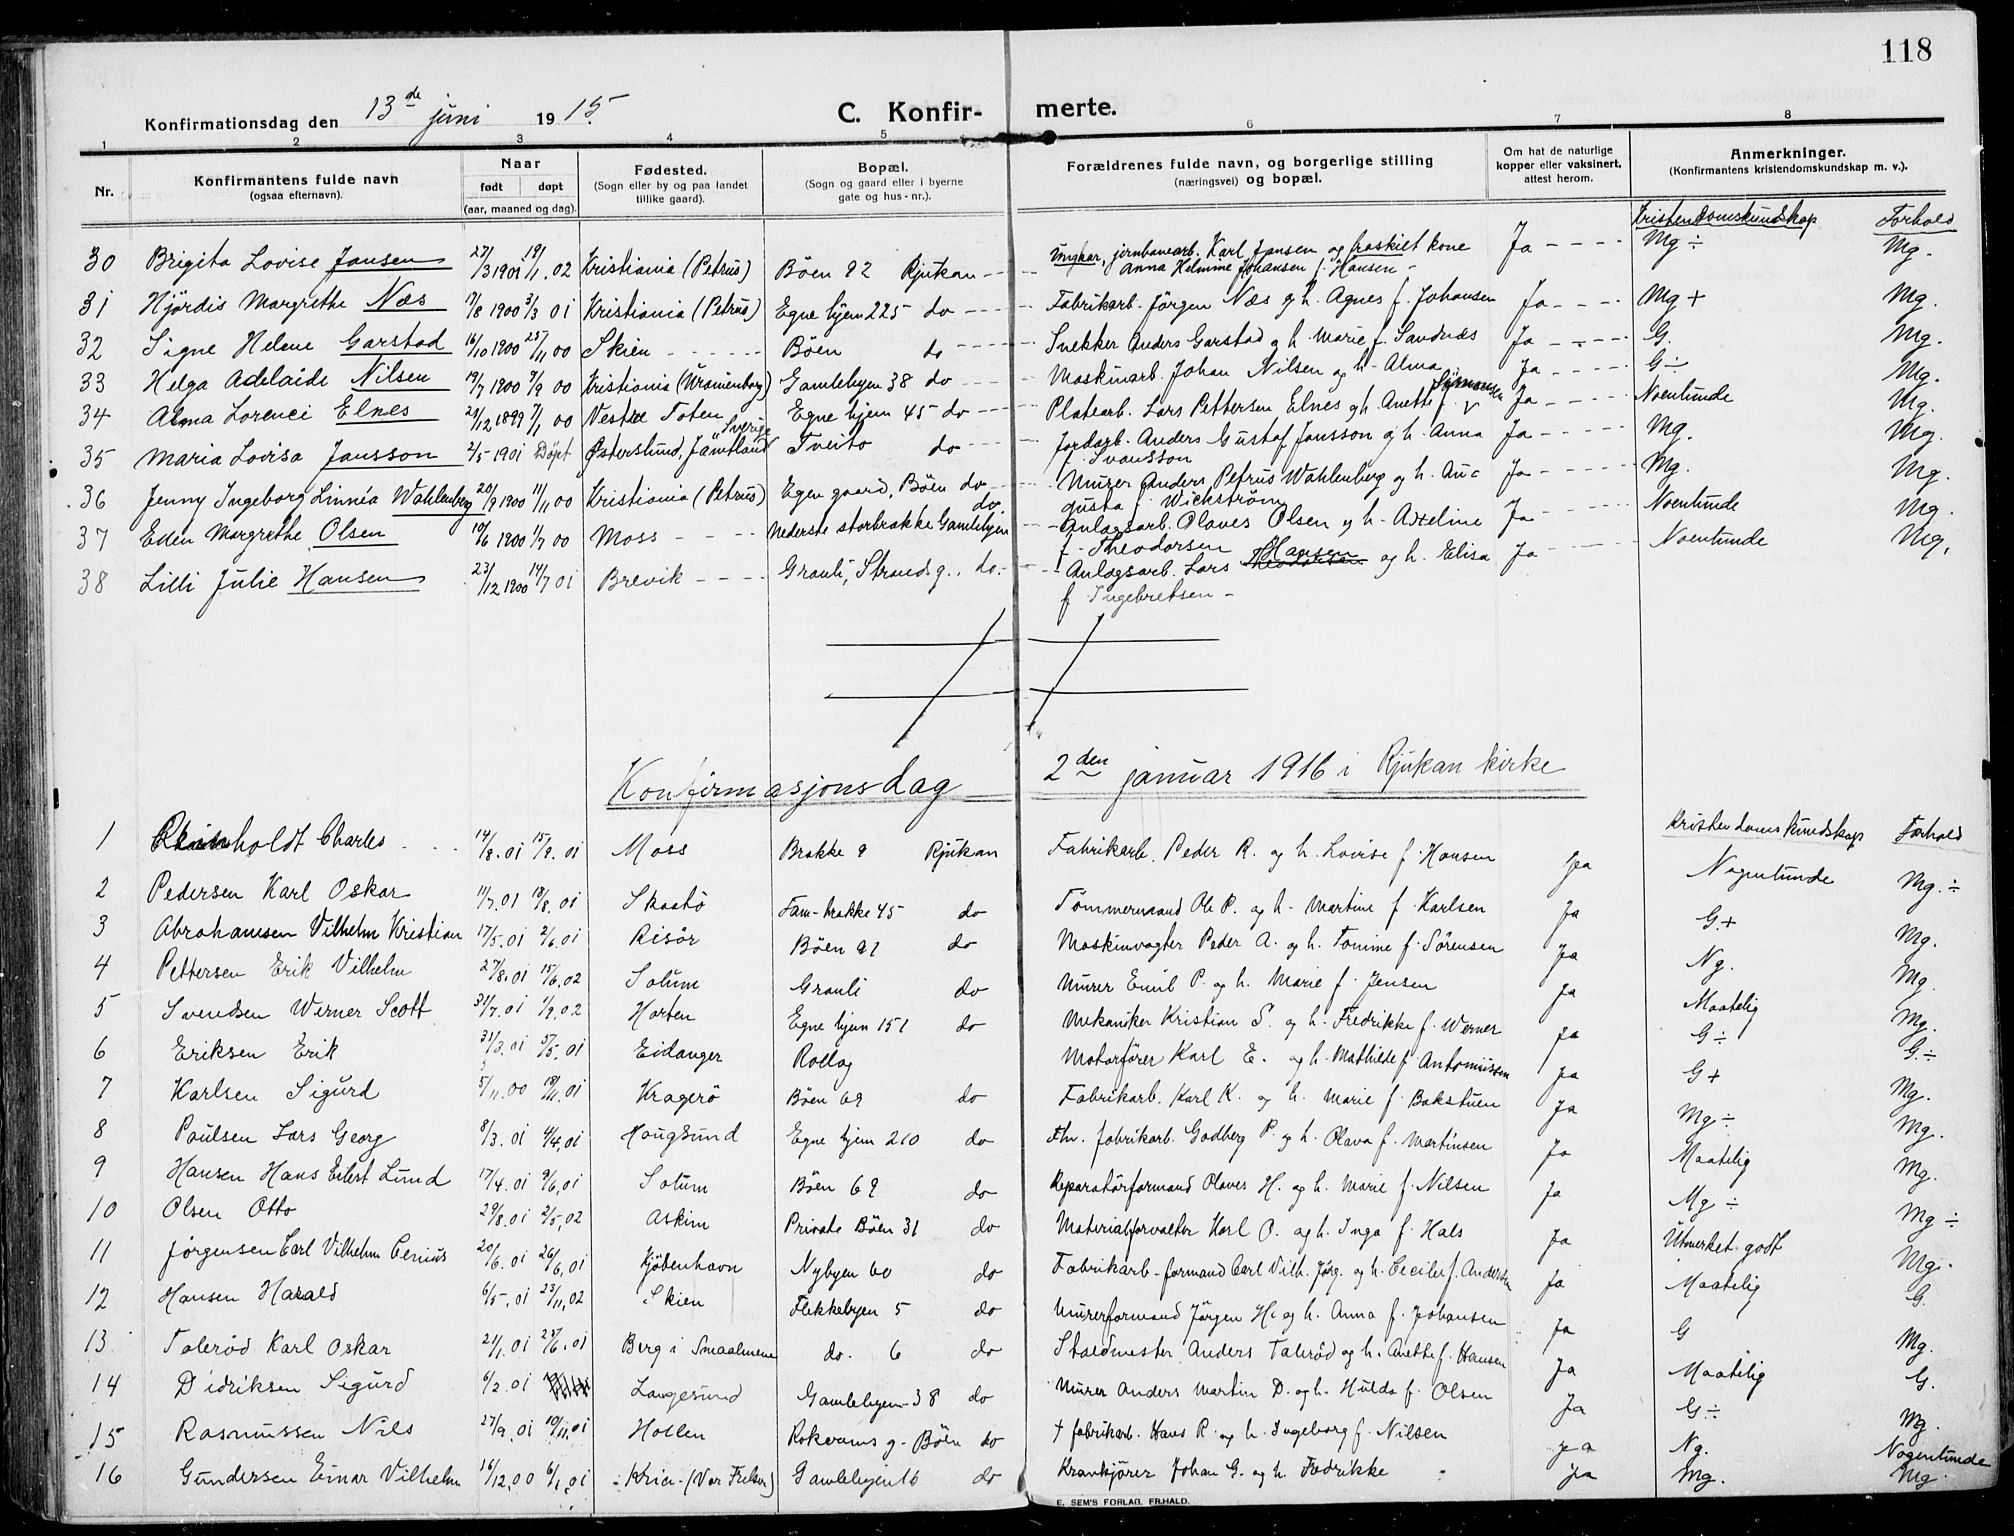 118
Konfirmationsdag den 13de juni 1915.
C. Konfirmerte.
1 2 3 4 5 6 7 8
Nr.
Konfirmantens fulde navn (ogsaa efternavn).
Naar født døpt (aar, maaned og dag).
Fødested. (Sogn eller by og paa landet tillike gaard).
Bopæl. (Sogn og gaard eller i byerne gate og hus-nr.).
Forældrenes fulde navn, og borgerlige stilling (næringsvei) og bopæl.
Om hat de naturlige kopper eller vaksinert, attest herom.
Anmerkninger. (Konfirmantens kristendomskundskap m. v.).
Kristendomskundskap Forhold
30 Brigita Lovise Jansen 27/3 1901 19/1. 02 Kristiania (Petrus) Böen 92 Rjukan Ungkar, jernbanearb. Karl Jansen og fraskilt kone Ja Mg ÷ Mg.
Anna Helmine Johansen f. Hansen
31 Hjördis Margrethe Næs 17/8 1900 3/3 01 Kristiania (Petrus) Egne hjem 225 do Fabrikarb. Jörgen Næs og h. Agnes f. Johansen Ja Mg + Mg.
32 Signe Helene Garstad 16/10 1900 25/11 00 Skien Böen do Snekker Anders Garstad og h. Marie f. Sandnæs Ja G. Mg.
33 Helga Adelaide Nilsen 19/7 1900 9/9 00 Kristiania (Uranienborg) Gamlebyen 38 do Maskinarb. Johan Nilsen og h. Alma Ja G ÷ Mg.
34 Alma Lorenci Elnes 29/12 1899 7/1 00 Vestre Toten Egne hjem 45 do Platearb. Lars Pettersen Elnes og h. Anette f. Ja Noenlunde Mg.
35 Maria Lovisa Jansson 2/5 1901 Döpt Østerslund, Jämtland Sverige Tveito do Jordarb. Anders Gustaf Jansson og h. Anna Ja Mg. Mg.
f. Svansson
36 Jenny Ingeborg Linnéa Wahlenberg 20/9 1900 11/11 00 Kristiania (Petrus) Egen gaard, Böen do Murer Anders Petrus Wahlenberg og h. Au- Ja Mg. Mg.
gusta f. Wickström
37 Ellen Margrethe Olsen 10/6 1900 1/7 00 Moss Nederste storbrakke Gamlebyen do. Anlagsarb. Olaves Olsen og h. Axeline Ja Noenlunde Mg.
f. Theodorsen
38 Lilli Julie Hansen 23/12 1900 14/7 01 Brevik Grauli, Strandg., do. Anlagsarb. Lars Theodorsen Hansen og h. Elisa Ja Noenlunde Mg.
f. Ingebretsen
Konfirmasjonsdag 2den januar 1916 i Rjukan kirke
Kristendomskundskap Forhold
1 Reinholdt Charles 14/8. 01 15/9. 01 Moss Brakke 9 Rjukan Fabrikarb. Peder R. og h. Lovise f. Hansen Ja Nogenlunde Mg. ÷
2 Pedersen Karl Oskar 11/7. 01 18/8. 01 Skaatö Fam-brakke 45 do Tömmermand Ole P. og h. Martine f. Karlsen Ja G + Mg.
3 Abrahamsen Vilhelm Kristian 17/5. 01 2/6. 01 Risör Böen 91 do Maskinvagter Peder A. og h. Tomine f. Sörensen Ja Ng. Mg.
4 Pettersen Erik Vilhelm 27/8. 01 15/6. 02 Solum Grauli do Murer Emil P. og h. Marie f. Jensen Ja Maatelig Mg.
5 Svendsen Werner Scott 31/7. 01 1/9. 02 Horten Egne hjem 151 do Mekaniker Kristian S. og h. Fredrikke f. Werner Ja G ÷ G. ÷
6 Eriksen Erik 31/3. 01 5/5. 01 Eidanger Rollag Motorförer Karl E. og h. Mathilde f. Antonissen Ja G + Mg.
7 Karlsen Sigurd 5/11. 00 18/11. 01 Kragerö Böen 69 do Fabrikarb. Karl K. og h. Marie f. Bakstuen Ja Mg ÷ Mg.
8 Poulsen Lars Georg 8/3. 01 4/4. 01 Haugsund Egne hjem 210 do Fhv. fabrikarb. Godberg P. og h. Olava f. Martinsen Ja Maatelig Mg.
9 Hansen Hans Eilert Lund 17/4. 01 9/6. 01 Solum Böen 69 do Reparatörformand Olaves H. og h. Marie f. Nilsen Ja Mg ÷ Mg ÷
10 Olsen Otto 29/8. 01 2/5. 02 Askim Private Böen 31 do Materialforvalter Karl O. og h. Inga f. Hals Ja Utmerket godt Mg.
11 Jørgensen Carl Vilhelm Cenius 20/6. 01 26/6. 01 Kjöbenhavn Nybyen 60 do Fabrikarb-formand Carl Vilh. Jørg. og h. Cecilie f. Andersen Ja Maatelig G.
12 Hansen Harald 6/5. 01 23/11. 02 Skien Flekkebyen 5 do Murerformand Jörgen H. og h. Anna f. Johansen Ja G Mg.
13 Tolerød Karl Oskar 21/1. 01 23/6. 01 Berg i Smaalenene do. 6 do Staldmester Anders Tolerød og h. Anette f. Hansen Ja Maatelig G.
14 Didriksen Sigurd 6/2. 01 Langesund Gamlebyen 38 do Murer Anders Martin D. og h. Hulda f. Olsen Ja G ÷ Mg.
15 Rasmussen Nils 27/9. 01 10/11. 01 Hollen Rokvams g. Böen do † fabrikarb. Hans R. og h. Ingeborg f. Nilsen Ja Ng. Nogenlunde
16 Gundersen Einar Vilhelm 16/12. 00 6/1. 01 Kria (Vor Frelser) Gamlebyen 16 do Krankjörer Johan G. og h. Fredrikke Ja Mg. Mg
E. SEM'S FORLAG, FR.HALD.